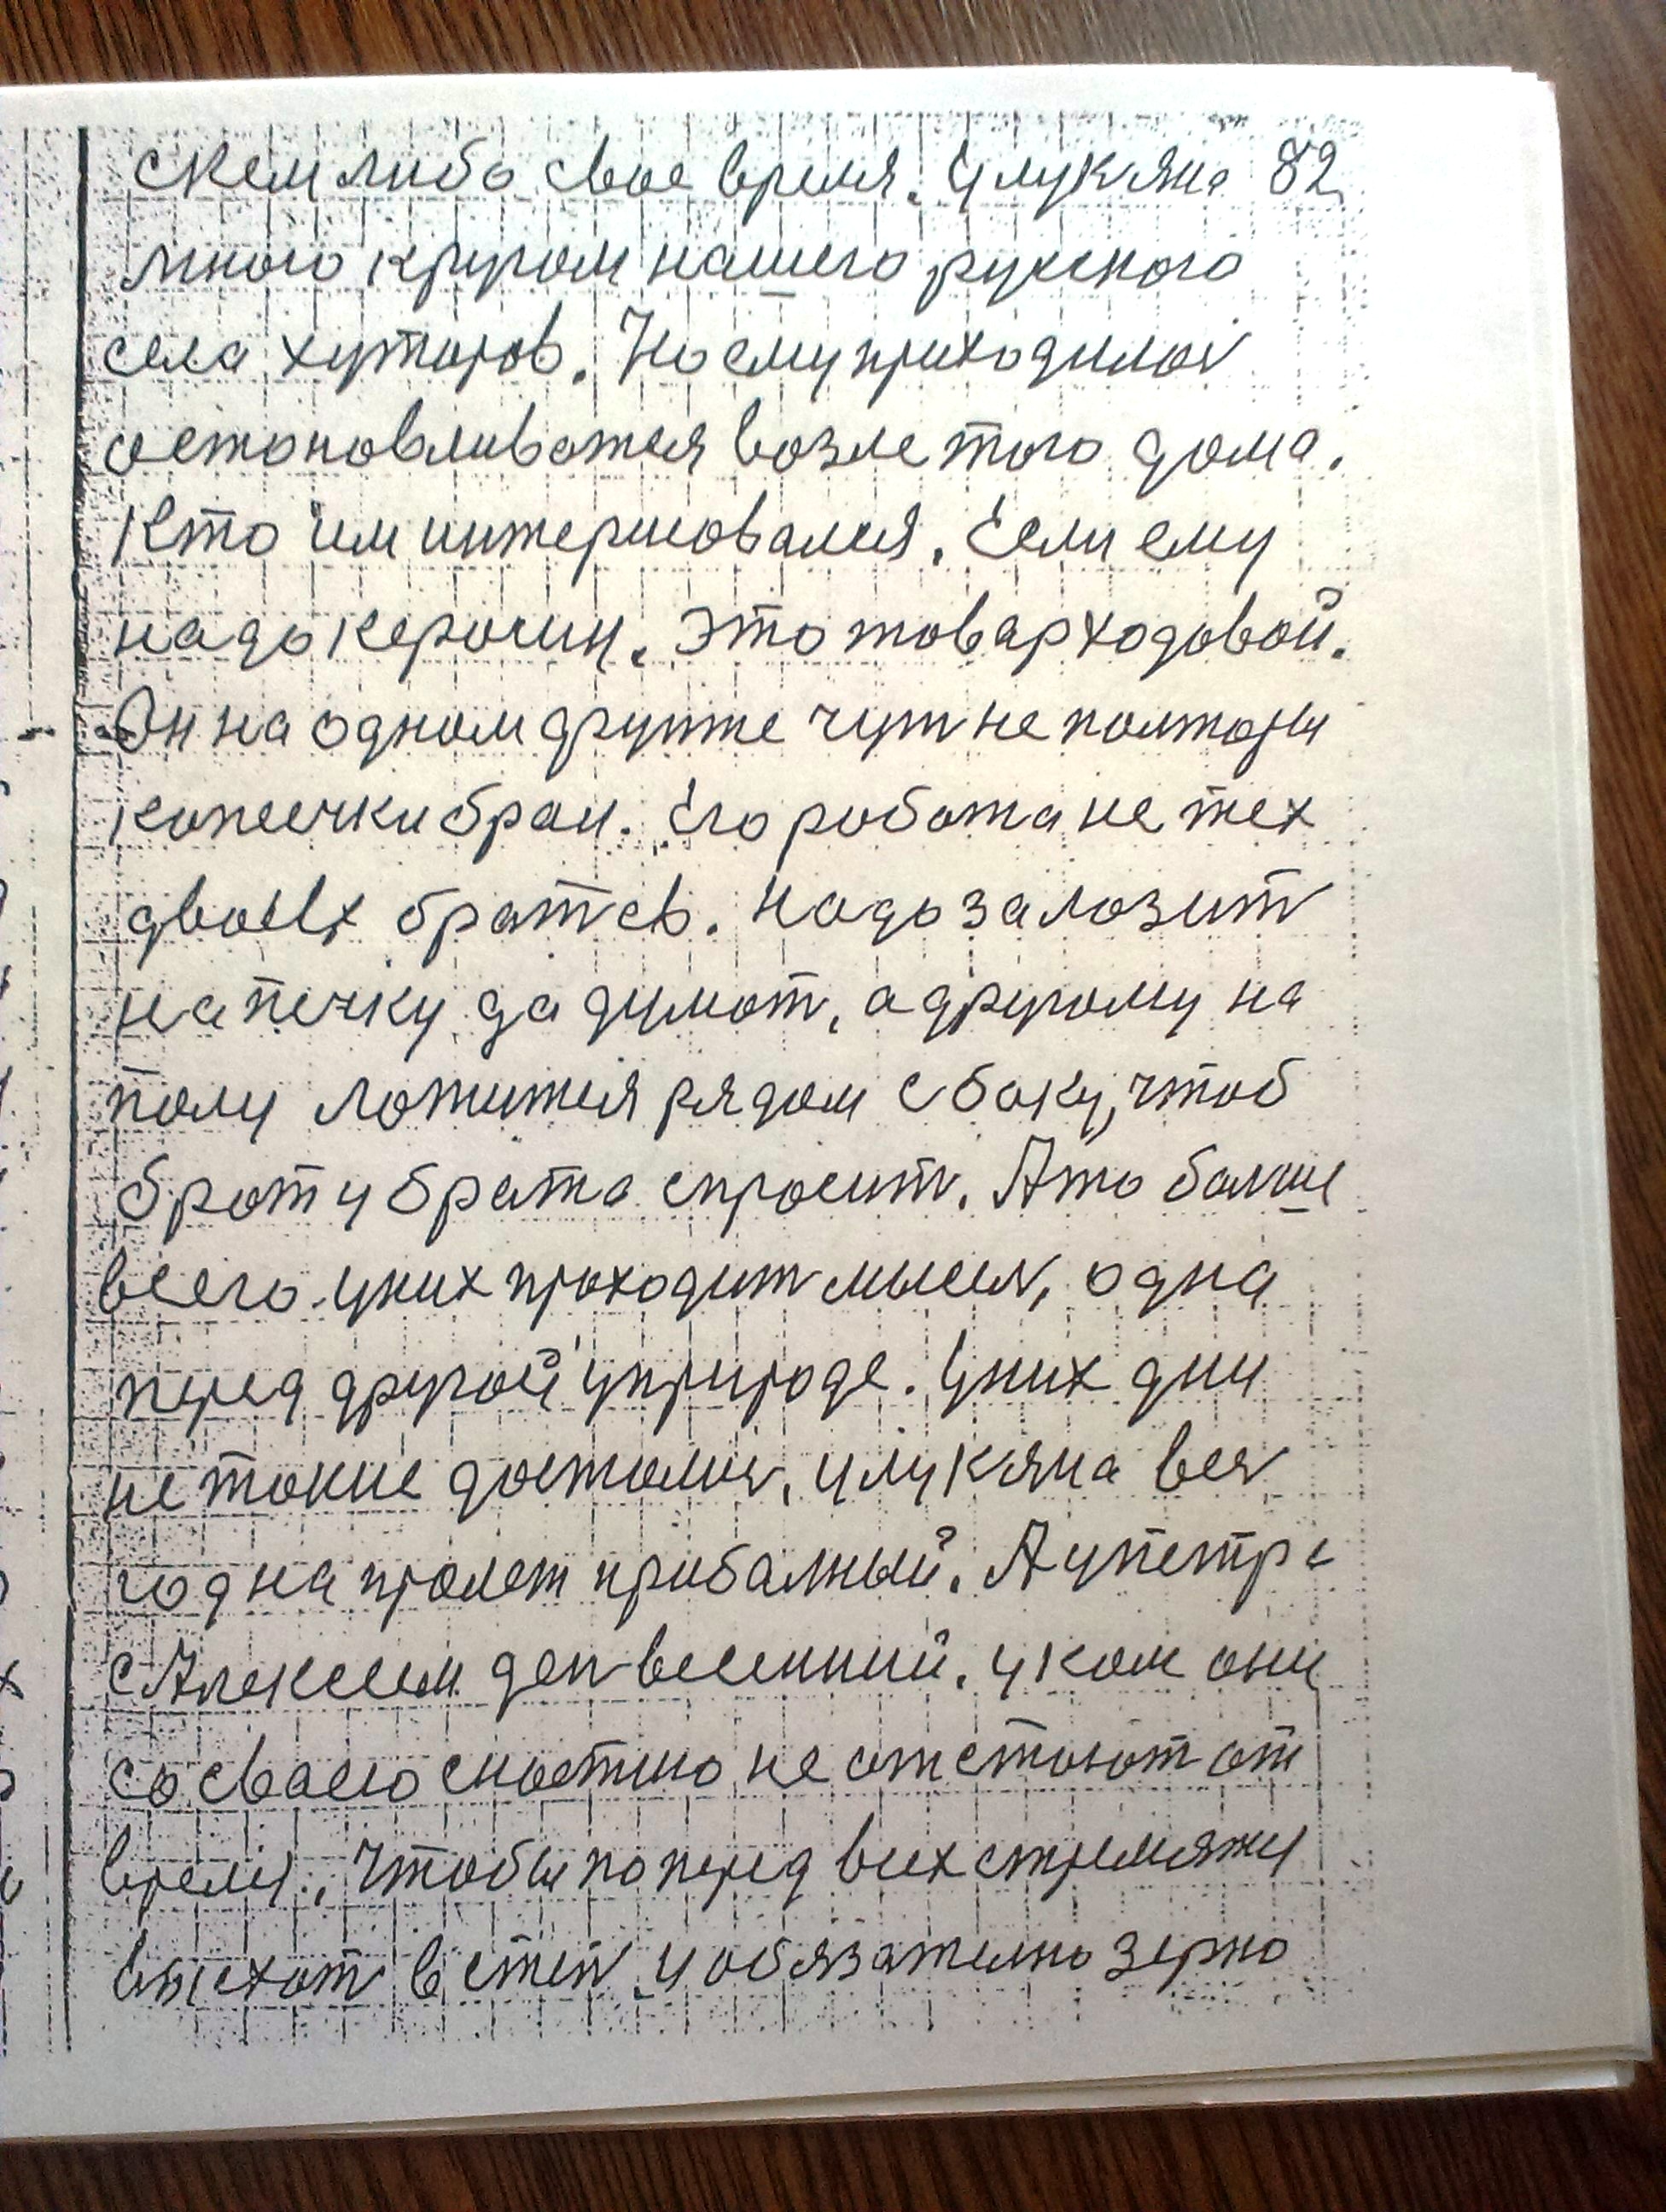 с кем либо свое время. У лукяна 82
много кругом нашего руского
села хуторов. Но ему приходилос
остоновливотся возле того дома.
Кто им интерисовался. Если ему
надо керосин. Это товар ходовой.
Он на одном фунте чут не полторы
копеечки брал. Его робота не тех
двоих братев. Надо залозит
на печку да думот, а другому на
полу ложится рядом с боку, чтоб
брот у брата спросит. А то болше
всего у них проходит мысля, одна
перед другой у природе. У них дни
не токие достолис, у лукяна вес
год на пролет прибалный. А у петра
с Алексеем ден весенний. у ком они
со своею сностию не отстоют от
время, Чтобы поперед всех стремяжу
выехот в степ у обязателно зерно